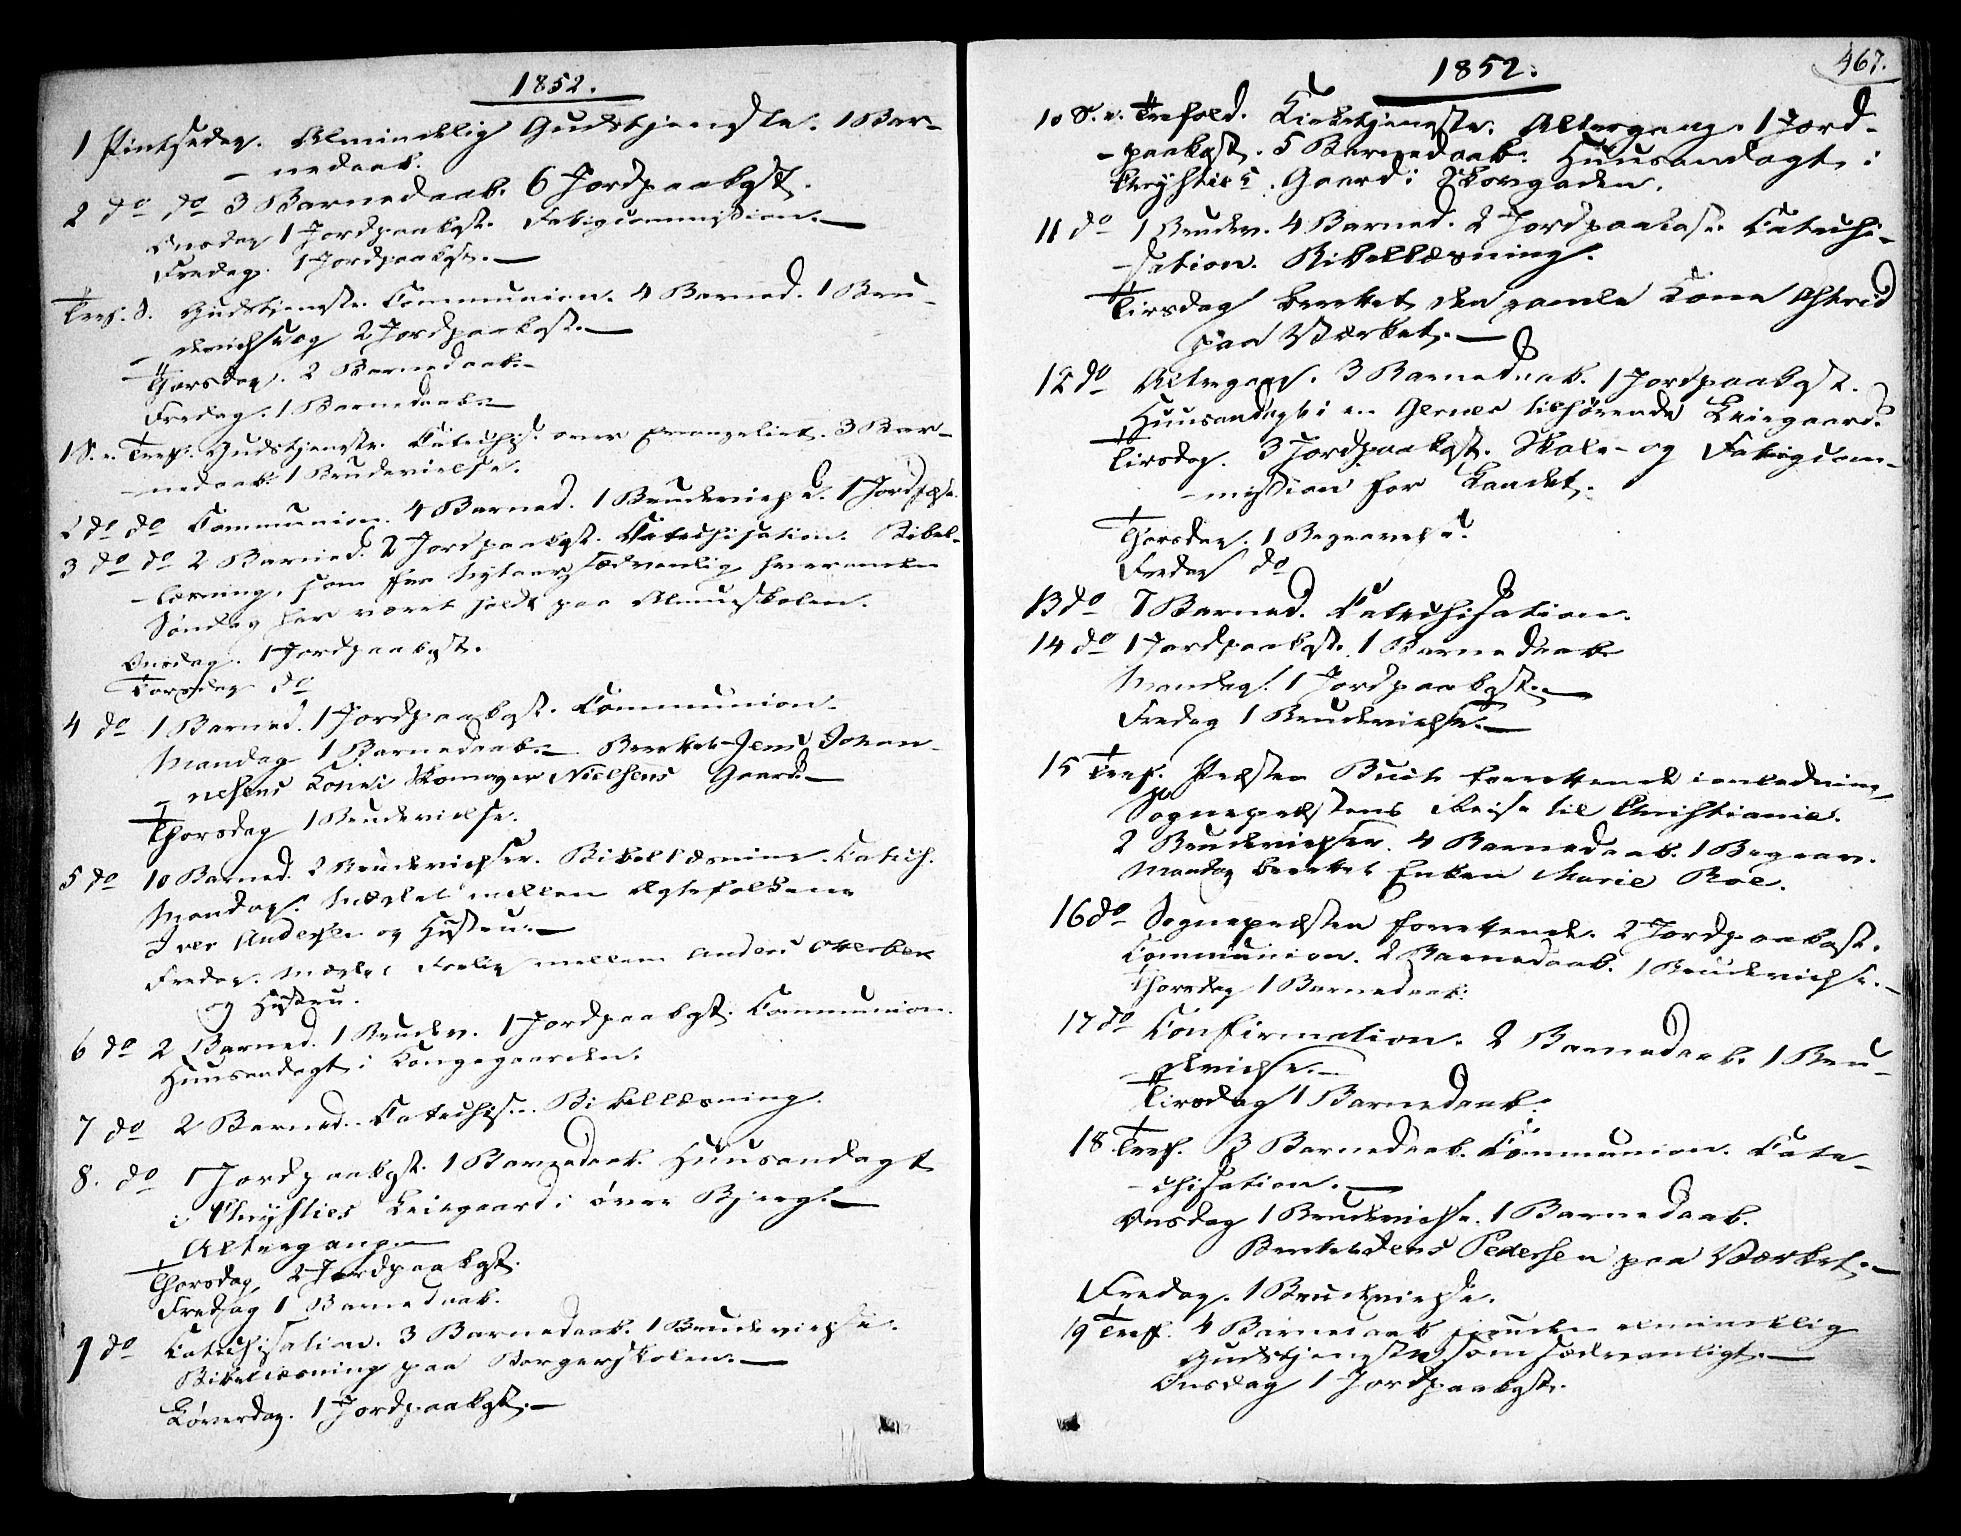 1852.
1 Pintsedag. Almindelig Gudstjenste. 1 Bar-
- nedaab.
2 do do 3 Barnedaab. 6 Jordpaakgst.
Onsdag 1 Jordpaakgst. Fatigcommission.—
Fredag. 1 Jordpaakgst.—
Tref. S. Gudstjenste. Communion. 4 Barned. 1 Bru-
- devielse og 2 Jordpaakgst.—
Thorsdag. 2 Barnedaab.-
Fredag. 1 Barnedaab.—
1 S. e. Tref. Gudstjenste. Catechis. over Evangeliet. 3 Bar-
- nedaab. 1 Brudevielse.
2 do do Communion. 4 Barned. 1 Brudevielse. 1 Jordfæst.
3 do do 2 Barned. 2 Jordpaakgst. Catechisation. Bibel-
- læsning, som fra Nytaar sædvanlig hveranden
Søndag har været holdt paa Almueskolen.
Onsdag. 1 Jordpaakgst.
Torsdag do
4 do 1 Barned. 1 Jordpaakgst. Communion.
Mandag 1 Barnedaab.— Berettet Jens Johan-
- nesens Kone i Skomager Nielsens Gaard.—
Thorsdag 1 Brudevielse.
5 do 10 Barned. 2 Brudevielser. Bibellæsning. Catech.
Mandag. Mæglet mellem Ægtefolkene
Iver Andersen og Hustru.—
Fredag. Mæglet mellem Anders
og Hustru.
6 do 2 Barned. 1 Brudev. 1 Jordpaakgst. Communion.
Huusandagt i Kongegaarden.
7 do 2 Barned. Catechis. Bibellæsning.
8. do 1 Jordpaakgst. 1 Barnedaab. Huusandagt
i Chrysties Leiegaard i øvre Bjerg.—
Altergang.—
Thorsdag, 2 Jordpaakgst.
Fredag 1 Barnedaab.
9 do Catechisation. 3 Barnedaab. 1 Brudevielse.
Bibellæsning paa Borgerskolen.—
Løverdag. 1 Jordpaakgst.—
1852.
467.
10 S. e. Trefold. Kirketjenste. Altergang. 1 Jord-
- paakgst. 5 Barnedaab. Huusandagt i
Chrysties Gaard i Skovgaden.
11 do 1 Brudev. 4 Barned. 2 Jordpaakast. Catechi-
- sation. Bibellæsning.
Tirsdag berettet den gamle Kone Astrid
paa Værket.—
12 do Altergang. 3 Barnedaab. 1 Jordpaakgst.
Huusandagt i en Gernes tilhørende Leiegaard.
Tirsdag. 3 Jordpaakgst. Skole- og Fatigcom-
- mission for Landet.
Thorsdag. 1 Begravelse.
Fredag do
13 do 7 Barned. Catechisation.
14 do 1 Jordpaakgst. 1 Barnedaab
Mandag. 1 Jordpaakgst.—
Fredag 1 Brudevielse.—
15 Tref. Præsten Buch forrettende i anledning
Sognepræstens Reise til Christiania.
2 Brudevielser. 4 Barnedaab. 1 Begrav.
Mandag berettet Enken Marie Roe.
16 do Sognepræsten forrettende. 2 Jordpaakast.
Communion. 2 Barnedaab. 1 Brudevielse.—
Thorsdag 1 Barnedaab.
17 do Confirmation. 2 Barnedaab. 1 Bru-
- devielse.—
Tirsdag 1 Barnedaab.
18 Tref. 3 Barnedaab. Communion. Cate-
- chisation.—
Onsdag 1 Brudevielse. 1 Barnedaab.
Berettet Jens Pedersen paa Værket.—
Fredag. 1 Brudevielse.
19 Tref. 4 Barnedaab foruden almindelig
Gudstjenste som sædvanligt.—
Onsdag 1 Jordpaakgst.